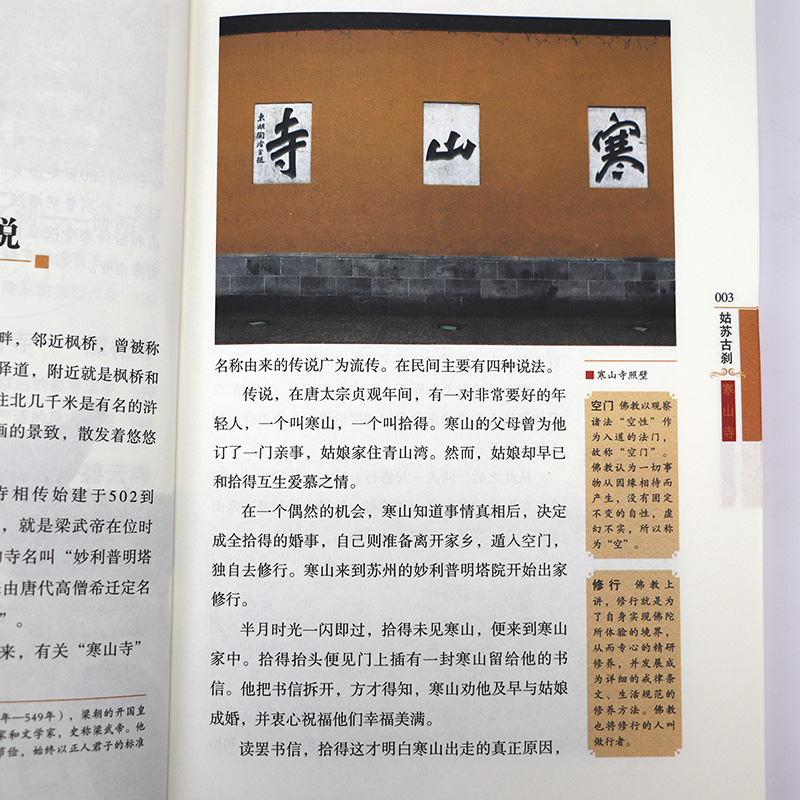 说
畔，邻近枫桥，曾被称
驿道，附近就是枫桥和
往北几千米是有名的浒
画的景致，散发着悠悠
寺相传始建于502到
，就是梁武帝在位时
寺名叫“妙利普明塔
由唐代高僧希迁定名
”。
来，有关“寒山寺”
年—549年），梁朝的开国皇
家和文学家，史称梁武帝。他
节俭，始终以正人君子的标准
寒
山
寺
東湖陶濬宣題
名称由来的传说广为流传。在民间主要有四种说法。
传说，在唐太宗贞观年间，有一对非常要好的年
轻人，一个叫寒山，一个叫拾得。寒山的父母曾为他
订了一门亲事，姑娘家住青山湾。然而，姑娘却早已
和拾得互生爱慕之情。
在一个偶然的机会，寒山知道事情真相后，决定
成全拾得的婚事，自己则准备离开家乡，遁入空门，
独自去修行。寒山来到苏州的妙利普明塔院开始出家
修行。
半月时光一闪即过，拾得未见寒山，便来到寒山
家中。拾得抬头便见门上插有一封寒山留给他的书
信。他把书信拆开，方才得知，寒山劝他及早与姑娘
成婚，并衷心祝福他们幸福美满。
读罢书信，拾得这才明白寒山出走的真正原因，
寒山寺照壁
空门 佛教以观察
诸法“空性”作
为入道的法门，
故称“空门”。
佛教认为一切事
物从因缘相待而
产生，没有固定
不变的自性，虚
幻不实，所以称
为“空”。
修行 佛教上
讲，修行就是为
了自身实现佛陀
所体验的境界，
从而专心的精研
修养，并发展成
为详细的戒律条
文、生活规范的
修养方法。佛教
也将修行的人叫
做行者。
003
姑苏古刹
寒山寺